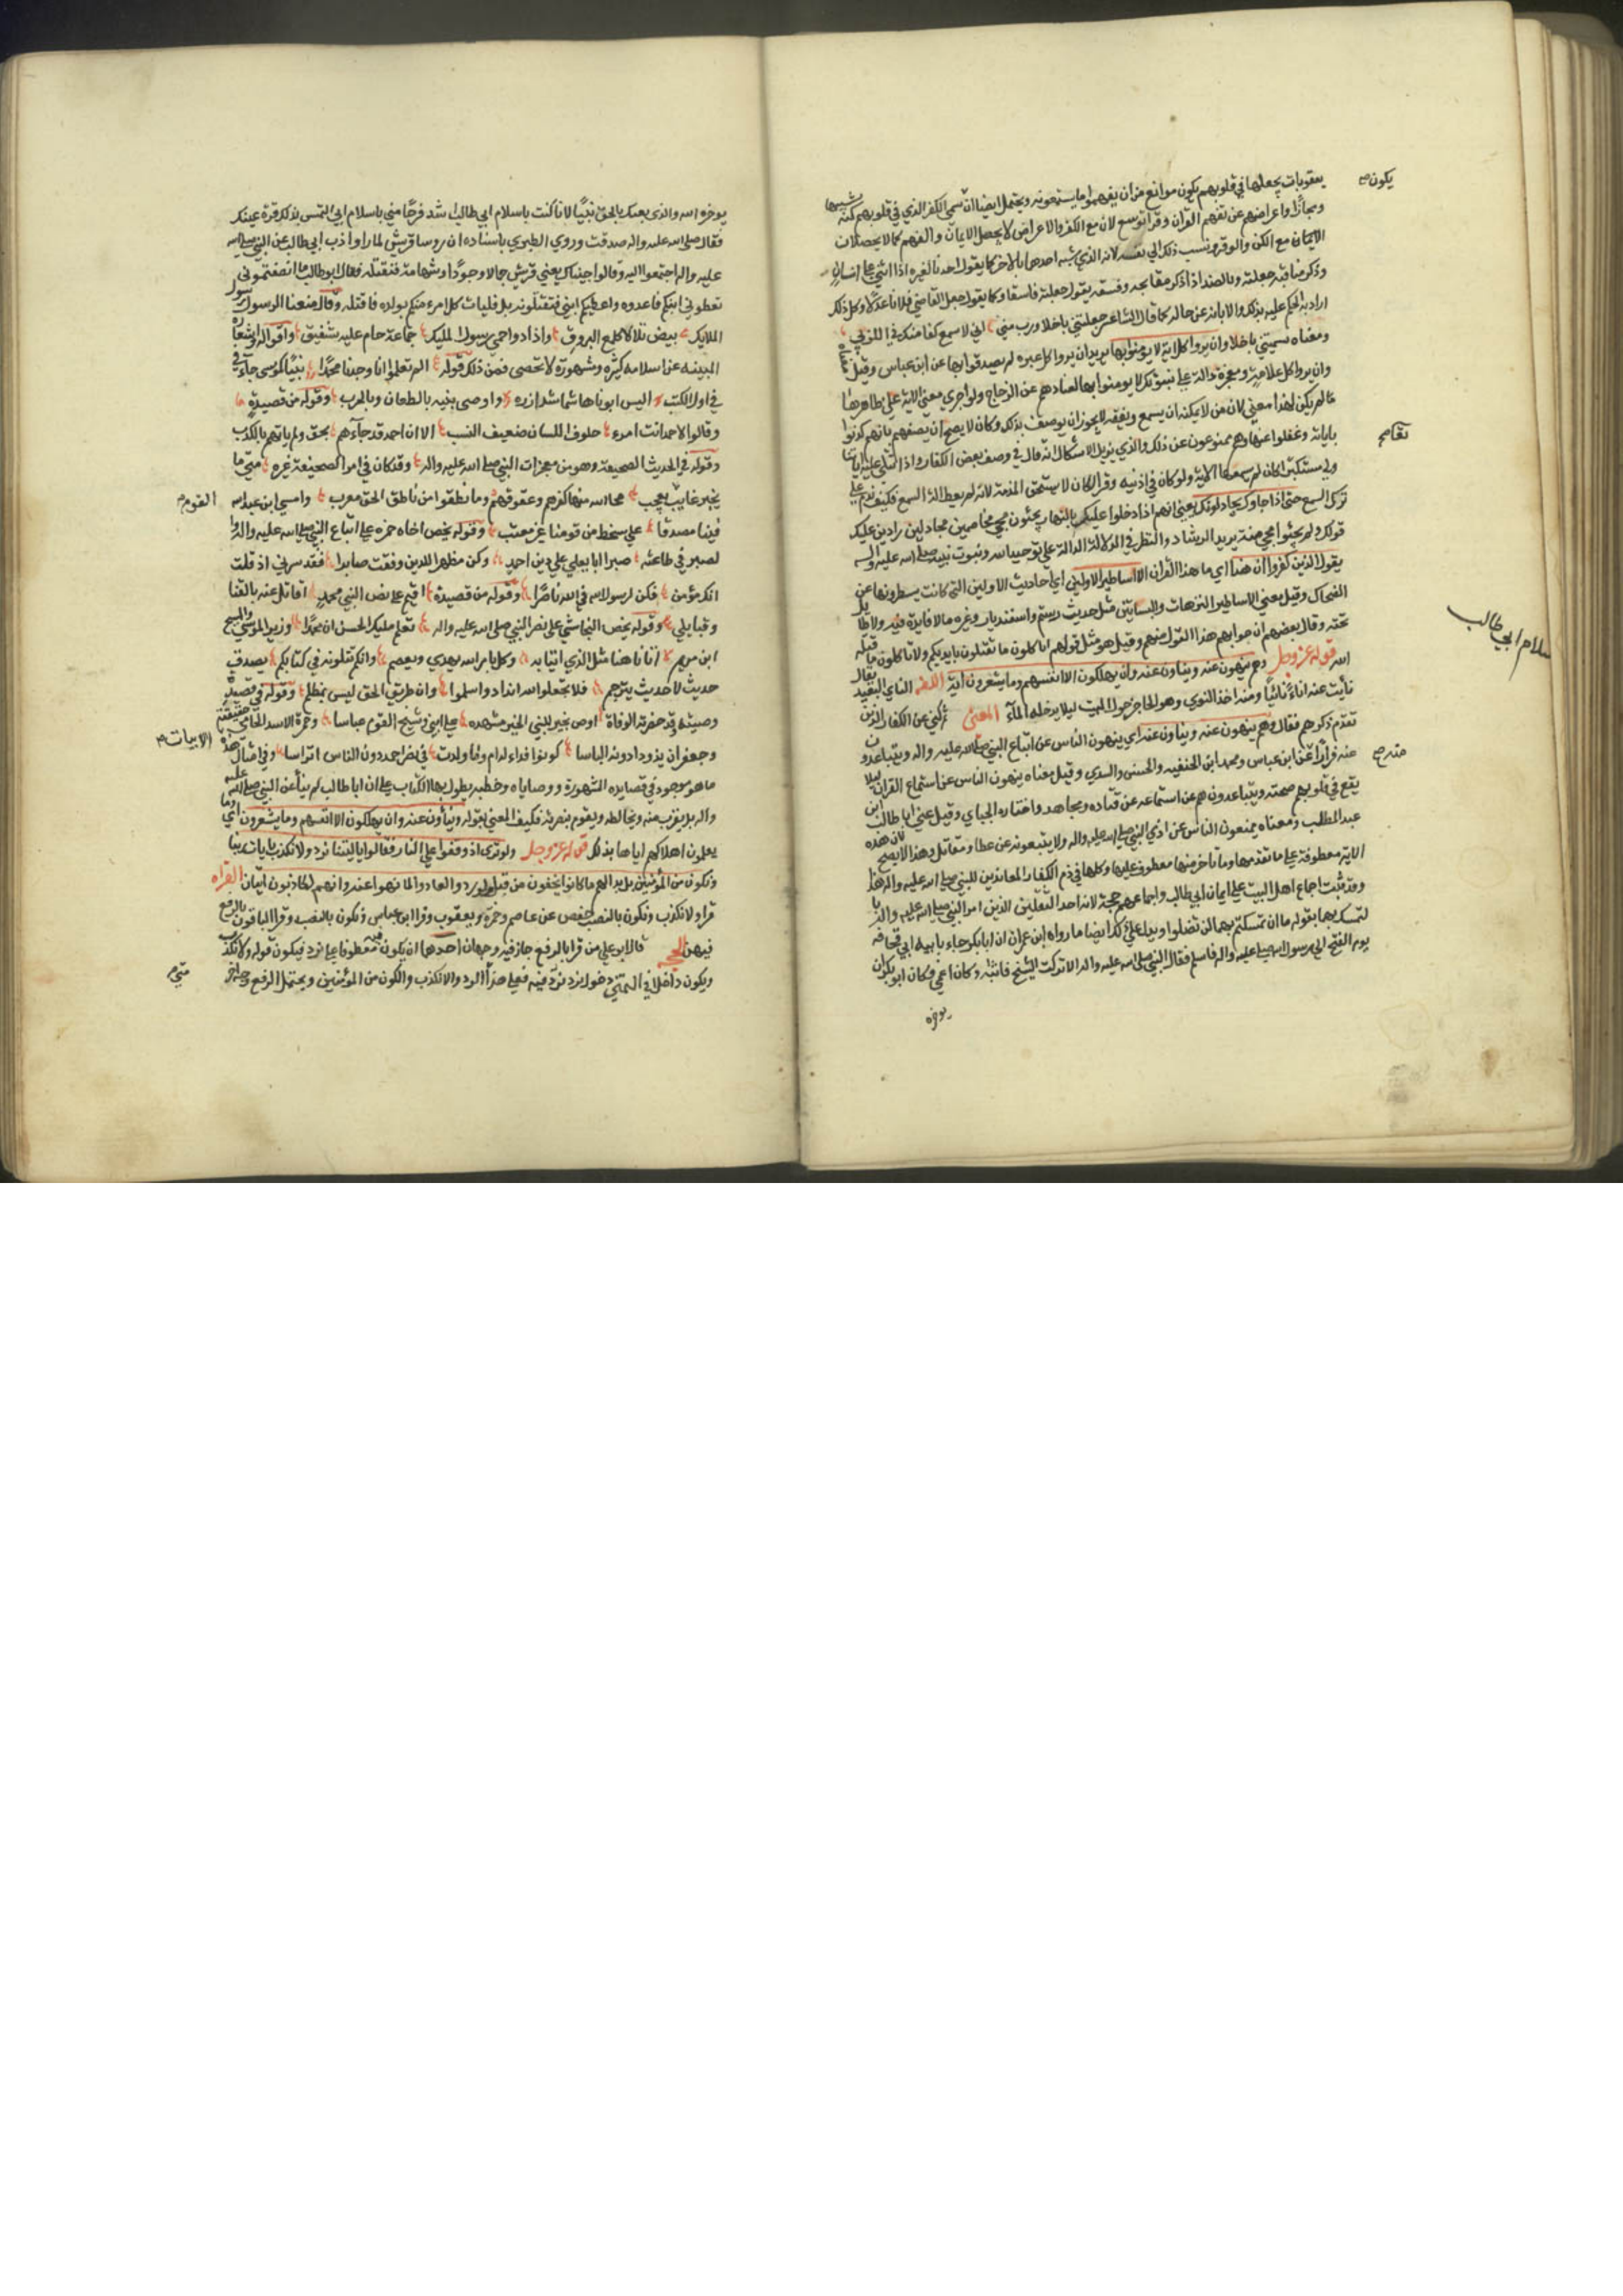 يعقوبات يجعلها في قلوبهم يكون موانع من ان يفهموا ما يستمعونه ويحتمل ايضا ان سمى الكفر الذي في قلوبهم كنه تشبيها
ومجازا واعراضهم عن تفهم القران وقرا توسع لان مع الكفر والاعراض لا يحصل الايمان والفهم كما لا يحصلان
الايمان مع الكن والوقر ونسب ذلك الى نفسه لانه الذي شبه احدهما بالاخر كما يقول احدنا لغيره اذا اثنى على انسان
وذكر مناقبه جعلته وبالضد اذا ذكر مقابحه وفسقه يقول جعلته فاسقا وكما يقول جعل القاضي فلانا عدلا وكل ذلك
اراد به الحكم عليه بذلك والابانه عن حاله كما قال الشاعر جعلتني باخلا ورب مني اني لاسمع كفا منك في اللزب
ومعناه سميتني باخلا وان يروا كل اية لا يومنوا بها يريد ان يروا كل عبره لم يصدقوا بها عن ابن عباس وقيل معناه
وان يروا كل علامة ومعجزة دالة على نبوتك لا يومنوا بها لعنادهم عن الزجاج ولو اجري معنى الاية على ظاهرها
ما لم يكن لهذا معنى لان من لا يمكنه ان يسمع ويفقه لا يجوز ان يوصف بذلك وكان لا يصح ان يصفهم بانهم كذبوا
باياته وغفلوا عنها وهم ممنوعون عن ذلك والذي يزيل الاشكال انه قال في وصف بعض الكفار واذا تتلى عليه اياتنا
ولى مستكبرا كان لم يسمعها الاية ولو كان في اذنيه وقرا لكان لا يستحق المذمة لانه لم يعط الة السمع فكيف يذم على
ترك السمع حتى اذا جاوك يجادلونك يعني انهم اذا دخلوا عليك بالنهار يجئون مجي مخاصمين مجادلين رادين عليك
قولك ولم يجئوا مجي من يريد الرشاد والنظر في الدلالة الدالة على توحيد الله ونبوت نبيه صلى الله عليه واله
يقول الذين كفروا ان هذا اي ما هذا القران الا اساطير الاولين اي احاديث الاولين التي كانت يسطرونها عن
الضحاك وقيل معنى الاساطير الترهات والبسابس مثل حديث رستم واسفنديار وغيره مالا فايدة فيه ولا طايل
تحته وقال بعضهم ان جوابهم هذا القول منهم وقيل هو مثل قولهم اتاكلون ما تقتلون بايديكم ولا تاكلون ما قتله
الله قوله عز وجل وهم ينهون عنه وينأون عنه وان يهلكون الا انفسهم وما يشعرون اية اللغه الناي البعيد يقال
نأيت عنه اناءً نائيا ومنه اخذ النوي وهو الحاجز حول البيت ليلا يدخله الماء المعنى ثم كنى عن الكفار الذين
تقدم ذكرهم فقال وهم ينهون عنه وينأون عنه اي ينهون الناس عن اتباع النبي صلى الله عليه واله ويتباعدون
عنه فرارا عن ابن عباس ومحمد ابن الحنفيه والحسن والسدي وقيل معناه ينهون الناس عن استماع القران ليلا
يقع في قلوبهم صحته ويتباعدون هم عن استماعه عن قتاده ومجاهد واختاره الجباي وقيل عنى ابا طالب ابن
عبد المطلب ومعناه يمنعون الناس عن اذى النبي صلى الله عليه واله ولا يتبعونه عن عطا ومقاتل وهذا لا يصح لان هذه
الاية معطوفة على ما تقدمها وما تاخر منها معطوف عليها وكلها في ذم الكفار المعاندين للنبي صلى الله عليه واله هذا
وقد ثبت اجماع اهل البيت على ايمان ابي طالب واجماعهم حجة لانه احد الثقلين الذين امر النبي صلى الله عليه واله
لتمسك بهما بقوله ما ان تمسكتم بهما لن تضلوا ويدل على ذلك ايضا ما رواه ابن عمر ان ابا بكر جاء بابيه ابي قحافه
يوم الفتح الى رسول الله صلى عليه واله فاسلم فقال النبي صلى الله عليه واله الا تركت الشيخ فاتيه وكان اعمى فكان ابو بكر ان
يوجره
يكون صح
تقاصم
سلام ابي طالب
منه صح
يوجره الله والذي بعثك بالحق نبيا لانا كنت باسلام ابي طالب اشد فرحا مني باسلام ابي التمس بذلك قرة عينك
فقال صلى الله عليه واله صدقت وروى الطبري باسناده ان روسا قريش لما راوا ذب ابي طالب عن النبي صلى الله
عليه واله اجتمعوا اليه وقالوا جيناك بفتى قريش جمالا وجودا وشهامة فنقتله فقال ابو طالب ما انصفتموني
تعطوني ابنكم فاغدوه واعطيكم ابني فتقتلونه بل فليات كل امرء منكم بولده فاقتله وقال منعنا الرسول رسول
المليك بيض تلالا كلمع البروق واذاد واحمى رسول المليك حماية حام عليه شفيق واقواله واشعاره
المبينه عن اسلامه كثيره ومشهورة لا تحصى فمن ذلك قوله الم تعلموا انا وجدنا محمدا نبيا كموسى جاء في
في اول الكتب اليس ابونا هاشما شد ازره واوصى بنيه بالطعان وبالحرب وقوله من قصيدة
وقالوا لاحمد انت امرء حلوف اللسان ضعيف النسب الا ان احمد قد جاءهم بحق ولم ياتهم بالكذب
وقوله في الحديث الصحيفة وهو من معجزات النبي صلى الله عليه واله وقد كان في امر الصحيفة عبره متى ما
يخبر غايب يعجب محا الله منها كفرهم وعقوقهم وما نطقوا من ناطق الحق معرب وامسى ابن عبد الله
فينا مصدقا على سخط من قومنا غير معتب وقوله يحض اخاه حمزه على اتباع النبي صلى الله عليه واله
لصبر في طاعته صبرا ابا يعلى على دين احمد وكن مظهرا للدين وفقت صابرا فقد سرني اذ قلت
انك مؤمن فكن لرسول الله في الله ناصرا وقوله من قصيدة اقيم على نصر النبي محمد اقاتل عنه بالقنا
وقبايلي وقوله يحض النجاشي على نصر النبي صلى الله عليه واله تعلم مليك الحسن ان محمدا وزير لموسى والمسيح
ابن مريم اتانا هنا مثل الذي اتيا به وكل بامر الله يهدي ويعصم وانكم تتلونه في كتابكم بصدق
حديث لا حديث يترجم فلا تجعلوا لله اندادا واسلموا وان طريق الحق ليس بمظلم وقوله في قصيدة
وصيته وقد حضرته الوفاة اوص بخير لنبي الخير مشهده عليا ابني وشيخ القوم عباسا وحمزة الاسد الحامي حقيقته
وجعفر ان يذود ادونه الباسا كونوا فداء لدام وما ولدت في نصر احمد دون الناس اتراسا وفي امثال هذه
ما هو موجود في قصايده المشهورة ووصاياه وخطبه يطول بها الكتاب على ان ابا طالب لم ينأ عن النبي صلى الله عليه
واله بل يقرب منه ويخالطه ويقوم بنصرته فكيف المعني بقوله وينأون عنه وان يهلكون الا انفسهم وما يشعرون اي وما
يعلمون اهلاكهم اياها بذلك قوله عز وجل ولو ترى اذ وقفوا على النار فقالوا ياليتنا نرد ولا نكذب بايات ربنا
ونكون من المؤمنين بل بدا لهم ما كانوا يخفون من قبل ولو ردوا لعادوا لما نهوا عنه وانهم لكاذبون ايتان القراه
قرا ولا نكذب ونكون بالنصب حفص عن عاصم وحمزة ويعقوب وقرا ابن عباس ونكون بالنصب وقرا الباقون بالرفع
فيهن الحجه قال ابو علي من قرا بالرفع جاز فيه وجهان احدهما ان يكون معطوفا على نرد فيكون قوله ولا نكذب
ويكون داخلا في التمني دخول نرد فيه فعلى هذا الرد والا نكذب والكون من المؤمنين ويحتمل الرفع وجها
القوم صح
الابيات صح